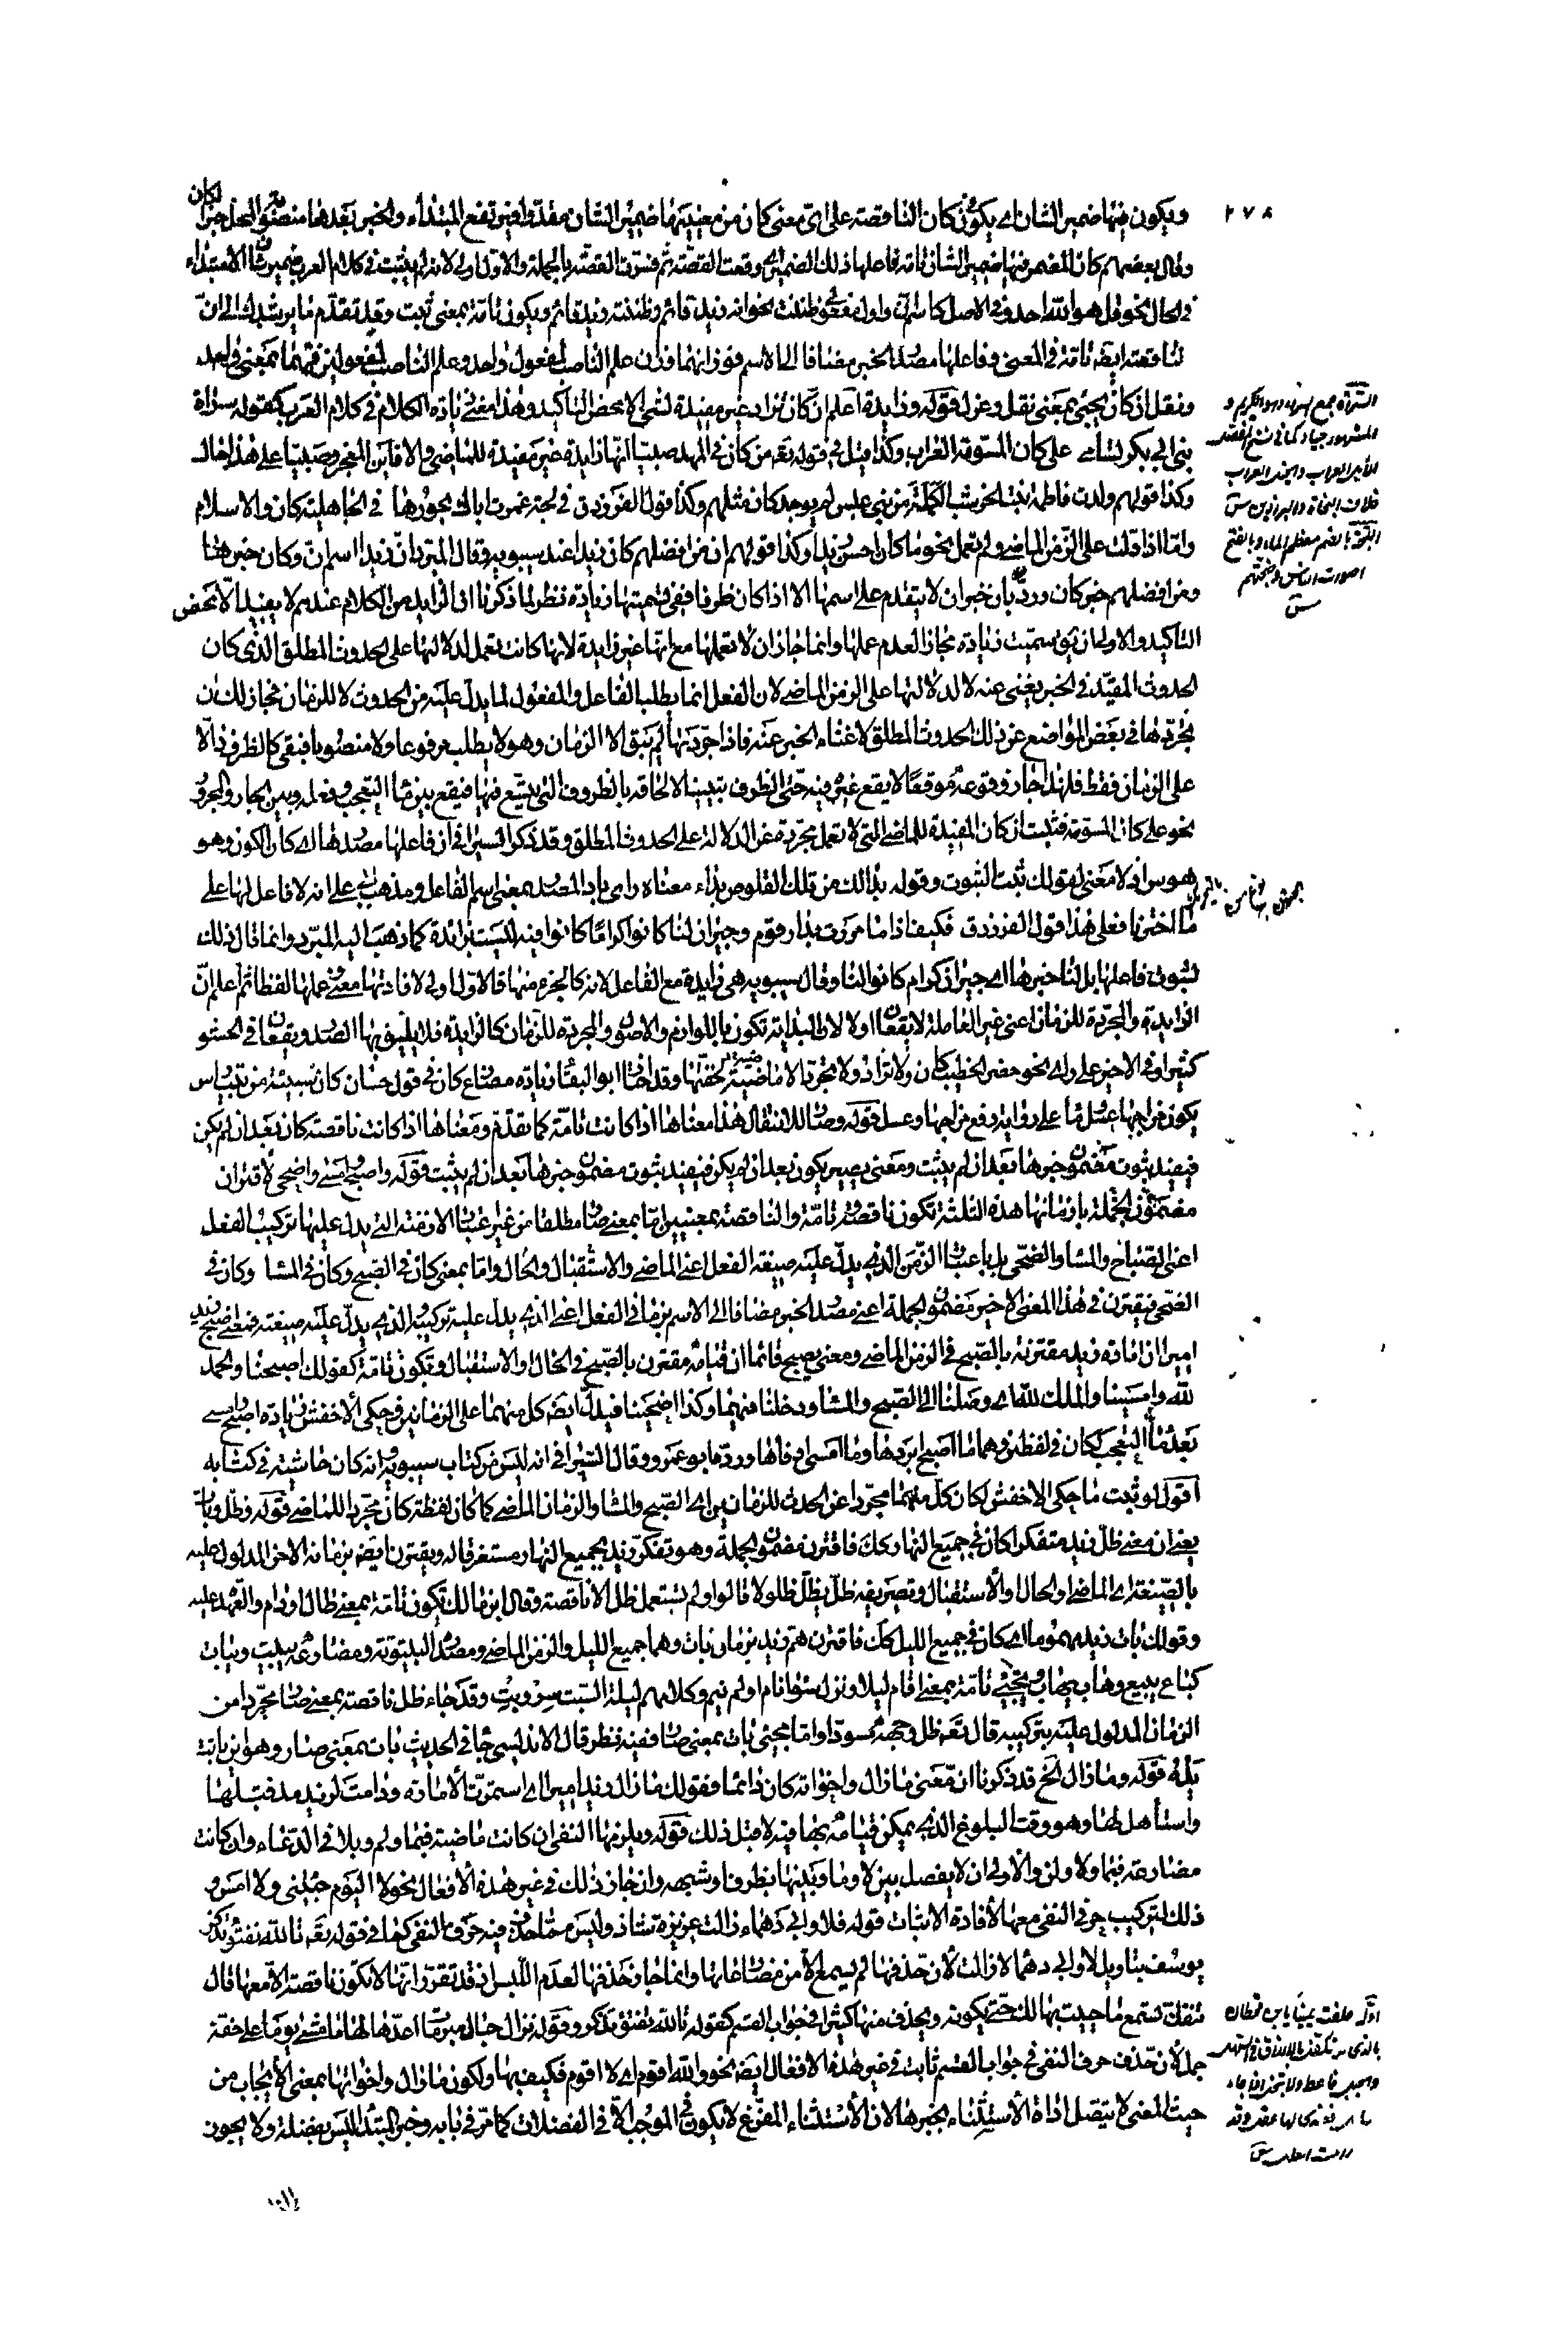 ٢٧٨
ويكون فيها ضمير الشان اى يكون فى كان الناقصة على اى معنى كان من معنييها ضمير الشان مقدرا فيرتفع المبتداء والخبر بعدها منصوبى المحل خبرا لكان
وقال بعضهم كان المضمر فيها ضمير الشان تامة فاعلها ذلك الضمير اى وقعت القصة ثم فسرت القصة بالجملة والاول اولى لانه لم يثبت فى كلام العرب ضمير شان الا مبتداء
فى الحال نحو قل هو الله احد وفى الاصل كاسم ان واول مفعولى ظننت نحو انه زيد قائم وظننته زيد قائم ويكون تامة بمعنى ثبت وقد تقدم ما يرشدك الى ان
الناقصة ايضا تامة فى المعنى وفاعلها مصدر الخبر مضافا الى الاسم فوزانهما وزان علم الناصب لمفعول واحد وعلم الناصب لمفعولين فهما بمعنى واحد
ونقل ان كان يجيئ بمعنى نقل وعزل قوله وزايدة اعلم ان كان تزاد غير مفيدة لشيئ الا محض التأكيد وهذا معنى زيادة الكلام فى كلام العرب كقوله سراة
بنى ابى بكر تسامى على كان المسومة العراب وكذا قيل فى قوله تعه من كان فى المهد صبيا انها زايدة غير مفيدة للماضى والا فاين المعجز وصبيا على هذا حال
وكذا قولهم ولدت فاطمة بنت الخرشب الكملة من بنى عبس لم يوجد كان مثلهم وكذا قول الفرزدق فى لجة غمرت اباك بحورها فى الجاهلية كان والاسلام
واما اذا دلت على الزمن الماضى ولم تعمل نحو ما كان احسن زيدا وكذا قولهم ان من افضلهم كان زيدا عند سيبويه وقال المبرد ان زيدا اسم ان وكان خبرها
ومن افضلهم خبر كان ورد بان خبر ان لا يتقدم على اسمها الا اذا كان ظرفا ففى تسميتها زيادة نظر لما ذكرنا ان الزايد من الكلام عندهم لا يفيد الا محض
التاكيد والاولى ان يق سميت زيادة مجازا لعدم عملها وانما جاز ان لا تعملها مع انها غير زايدة لانها كانت تعمل لدلالتها على الحدوث المطلق الذى كان
الحدوث المقيد فى الخبر يغنى عنه لا لدلالتها على الزمن الماضى لان الفعل انما يطلب الفاعل والمفعول لما يدل عليه من الحدوث لا للزمان فجاز لك ان
تجردها فى بعض المواضع عن ذلك الحدوث المطلق لاغناء الخبر عنه فاذا جردتها لم يبق الا الزمان وهو لا يطلب مرفوعا ولا منصوبا فبقى كالظرف دالا
على الزمان فقط فلهذا جاز وقوعه موقعا لا يقع غيره فيه حتى الظرف تبيينا لالحاقه بالظروف التى يتسع فيها فيقع بين ما التعجب وفعله وبين الجار والمجرور
نحو على كان المسومة فثبت ان كان المفيدة للماضى التى لا تعمل مجردة عن الدلالة على الحدوث المطلق وقد ذكر السيرافى ان فاعلها مصدرها اى كان الكون وهو
هوس اذ لا معنى لقولك ثبت الثبوت وقوله بدا لك من تلك القلوص بداء معناه راى باد المصدر بمعنى اسم الفاعل ومذهب ابى على انه لا فاعل لها على
ما اخترنا فعلى هذا قول الفرزدق فكيف اذا ما مررت بدار قوم وجيران لنا كانوا كراما كانوا فيه ليست بزايدة كما ذهب اليه المبرد وانما قال ذلك
لثبوت فاعلها بل لنا خبرها اى جيران كرام كانوا لنا وقال سيبويه هى زايدة مع الفاعل لانه كالجزء منها قالاول اولى لافادتها معنى وعملها لفظا ثم اعلم ان
الزايدة والمجردة للزمان اعنى غير العاملة لا يقعان اولا لان البداية تكون باللوازم والاصول والمجردة للزمان كالزايدة فلا يليق بهما الصدر ويقعان فى الحشو
كثيرا وفى الاخير على راى نحو حضر الخطيب كان ولا تزاد ولا تجرد الا ماضية لخفتها وقد اجاز ابو البقاء زيادة مضارع كان فى قول حسان كان سبيئة من بيت راس
يكون مزاجها عسل وماء على رواية رفع مزاجها وعسل قوله وصار للانتقال هذا معناها اذا كانت تامة كما تقدم ومعناها اذا كانت ناقصة كان بعد ان لم يكن
فيفيد ثبوت مضمون خبرها بعد ان لم يثبت ومعنى يصير يكون بعد ان لم يكن فيفيد ثبوت مضمون خبرها بعد ان لم يثبت قوله واصبح وامسى واضحى لاقتران
مضمون الجملة بازمانها هذه الثلثة تكون ناقصة وتامة والناقصة بمعنيين اما بمعنى صار مطلقا من غير اعتبار الازمنة التى يدل عليها تركيب الفعل
اعنى الصباح والمساء والضحى بل باعتبار الزمن الذى يدل عليه صيغة الفعل اعنى الماضى والاستقبال والحال واما بمعنى كان فى الصبح وكان فى المساء وكان فى
الضحى فيقترن فى هذا المعنى الاخير مضمون الجملة اعنى مصدر الخبر مضافا الى الاسم بزمانى الفعل اعنى الذى يدل عليه تركيبه والذى يدل عليه صيغته فمعنى اصبح زيد
اميرا ان امارة زيد مقترنة بالصبح فى الزمن الماضى ومعنى يصبح قائما ان قيامه مقترن بالصبح فى الحال او الاستقبال وتكون تامة كقولك اصبحنا والحمد
لله وامسينا والملك لله اى وصلنا الى الصبح والمساء ودخلنا فيهما وكذا اضحينا فيدل ايضا كل منهما على الزمانين وحكى الاخفش زيادة اصبح وامسى
بعد ما التعجب ككان فى لفظين وهما ما اصبح ابردها وما امسى ادفاها ورده ابو عمرو وقال السيرافى انه ليس من كتاب سيبويه وانه كان حاشية فى كتابه
اقول لو ثبت ما حكى الاخفش لكان كل منهما مجردا عن الحدث للزمانين اى الصبح والمساء والزمان الماضى كما كان لفظة كان مجردا للماضى قوله وظل وبات
يعنى ان معنى ظل زيد متفكرا كان فى جميع النهار كك فاقترن مضمون الجملة وهو تفكر زيد بجميع النهار مستغرقا له ويقترن ايضا بزمانه الاخر المدلول عليه
بالصيغة اى الماضى او الحال او الاستقبال وتصريفه ظل يظل ظلولا قالوا ولم تستعمل ظل الا ناقصة وقال ابن مالك تكون تامة بمعنى طال او دام والعهدة عليه
وقولك بات زيد مهموما اى كان فى جميع الليل كك فاقترن هم زيد بزمانى بات وهما جميع الليل والزمن الماضى ومصدره البيتوتة ومضارعه يبيت ويبات
كباع يبيع وهاب يهاب ويجيئ تامة بمعنى اقام ليلا ونزل سواء نام او لم ينم وكلامهم ليلة السبت سر وبت وقد جاء ظل ناقصة بمعنى صار مجردا من
الزمان المدلول عليه بتركيبه قال تعه ظل وجهه مسودا واما مجيئ بات بمعنى صار ففيه نظر قال الاندلسى جاء فى الحديث بات بمعنى صار وهو اين باتت
يده قوله وما زال الخ قد ذكرنا ان معنى ما زال واخواته كان دائما فقولك ما زال زيد اميرا اى استمرت الامارة ودامت لزيد مذ قبلها
واستأهل لها وهو وقت البلوغ الذى يمكن قيامه بها فيه لا قبل ذلك قوله ويلزمها النفى ان كانت ماضية فبما ولم وبلا فى الدعاء وان كانت
مضارعة فبما ولا ولن والاولى ان لا يفصل بين لا وما وبينها بظرف او شبهه وان جاز ذلك فى غير هذه الافعال نحو لا اليوم جئتنى ولا امس و
ذلك لتركيب حرف النفى معها لافادة الاثبات قوله فلا وابى دهماء زالت عزيزة شاذ وليس مما حذف فيه حرف النفى كما فى قوله تعه تالله تفتؤ تذكر
يوسف بتاويل لا وابى دهماء لا زالت لان حذفها لم يسمع الا من مضارعاتها وانما جاز حذفها لعدم اللبس اذ قد تقرر انها لا تكون ناقصة الا معها قال
تنفك تسمع ما حييت بهالك حتى تكونه ويحذف منها كثيرا فى جواب القسم كقوله تالله تفتؤ تذكر وقوله تزال حبال مبرمات اعدها لها ما مشى يوما على خفه
جمل لان حذف حرف النفى فى جواب القسم ثابت فى غير هذه الافعال ايضا نحو والله اقوم اى لا اقوم فكيف بها ولكون ما زال واخواتها بمعنى الايجاب من
حيث المعنى لا يتصل اداة الاستثناء بخبرها لان الاستثناء المفرغ لا يكون فى الموجب الا فى الفضلات كما مر فى بابه وخبر المبتدا ليس بفضلة ولا يجوز